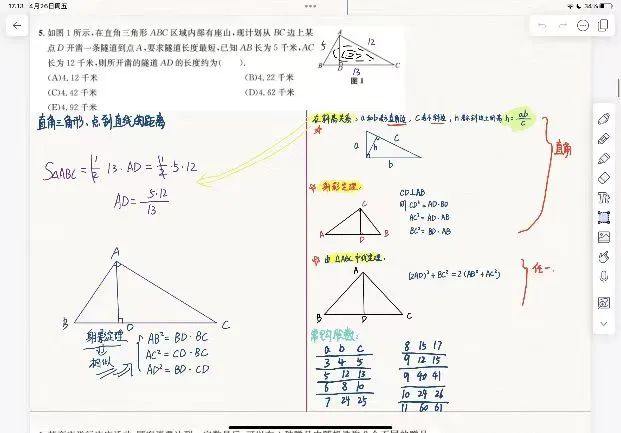 17:13 4月26日周五
34%
5. 如图 1 所示,在直角三角形 ABC 区域内部有座山,现计划从 BC 边上某
点 D 开凿一条隧道到点 A,要求隧道长度最短,已知 AB 长为 5 千米,AC
长为 12 千米,则所开凿的隧道 AD 的长度约为( ).
(A)4.12 千米 (B)4.22 千米
(C)4.42 千米 (D)4.62 千米
(E)4.92 千米
A
5
12
B D C
13
图 1
直角三角形、点到直线的距离
S△ABC = 1/2 13·AD = 1/2·5·12
AD = 5·12/13
A
B D C
射影定理
相似
AB² = BD·BC
AC² = CD·BC
AD² = BD·CD
在斜高关系: a和b表示直角边, c表示斜边, h表示斜边上的高 h = ab/c
a h c
b
射影定理:
C
A D B
CD⊥AB
则 CD² = AD·BD
AC² = AD·AB
BC² = BD·AB
直角
由 △ABC 中线定理:
A
B D C
(2AD)² + BC² = 2(AB² + AC²)
任一
常见勾股数:
a b c
3 4 5
5 12 13
6 8 10
7 24 25
8 15 17
9 12 15
9 40 41
10 24 26
11 60 61